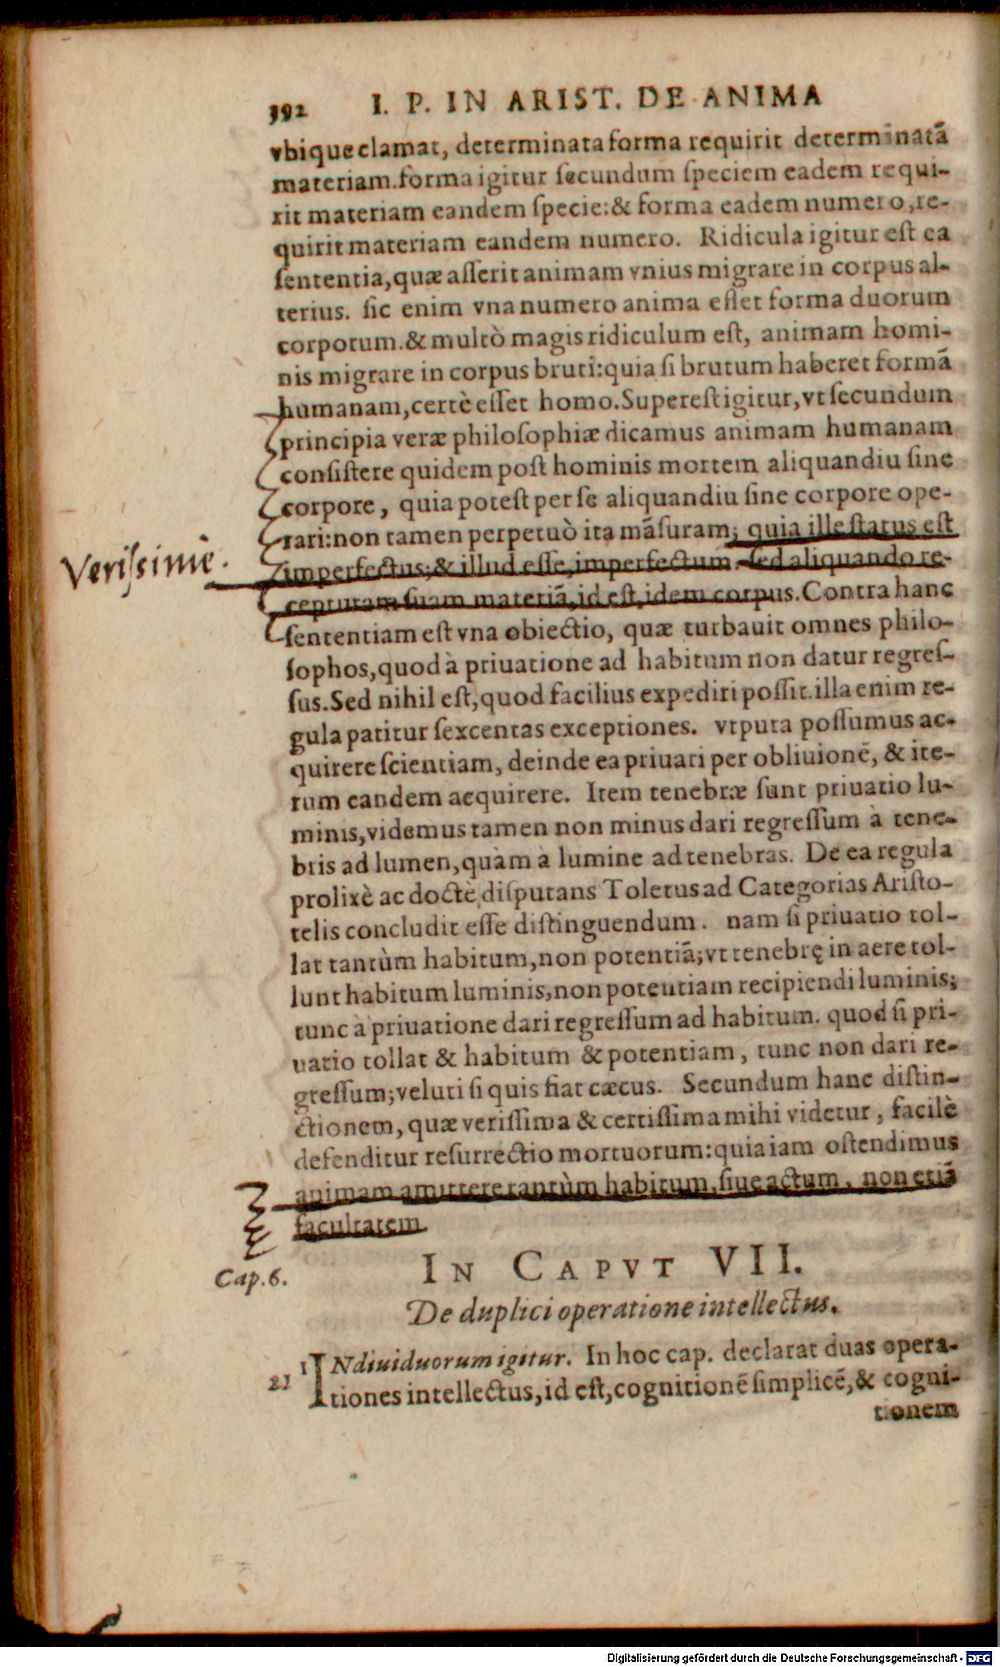 392 I. P. IN ARIST. DE ANIMA
vbique clamat, determinata forma requirit determinatā
materiam. forma igitur secundum speciem eadem requi-
rit materiam eandem specie: & forma eadem numero, re-
quirit materiam eandem numero. Ridicula igitur est ea
sententia, quæ asserit animam vnius migrare in corpus al-
terius. sic enim vna numero anima esset forma duorum
corporum. & multò magis ridiculum est, animam homi-
nis migrare in corpus bruti: quia si brutum haberet formā
humanam, certè esset homo. Superest igitur, vt secundum
principia veræ philosophiæ dicamus animam humanam
consistere quidem post hominis mortem aliquandiu sine
corpore, quia potest per se aliquandiu sine corpore ope-
rari: non tamen perpetuò ita māsuram; quia ille status est
Verissimè.
imperfectus; & illud esse, imperfectum. sed aliquando re-
cepturam suam materiā, id est, idem corpus. Contra hanc
sententiam est vna obiectio, quæ turbauit omnes philo-
sophos, quod à priuatione ad habitum non datur regres-
sus. Sed nihil est, quod facilius expediri possit. illa enim re-
gula patitur sexcentas exceptiones. vtputa possumus ac-
quirere scientiam, deinde ea priuari per obliuionē, & ite-
rum eandem acquirere. Item tenebræ sunt priuatio lu-
minis, videmus tamen non minus dari regressum à tene-
bris ad lumen, quàm à lumine ad tenebras. De ea regula
prolixè ac doctè disputans Toletus ad Categorias Aristo-
telis concludit esse distinguendum. nam si priuatio tol-
lat tantùm habitum, non potentiā; vt tenebrę in aere tol-
lunt habitum luminis, non potentiam recipiendi luminis;
tunc à priuatione dari regressum ad habitum. quod si pri-
uatio tollat & habitum & potentiam, tunc non dari re-
gressum; veluti si quis fiat cæcus. Secundum hanc distin-
ctionem, quæ verissima & certissima mihi videtur, facilè
defenditur resurrectio mortuorum: quia iam ostendimus
animam amittere tantùm habitum, siue actum, non etiā
facultatem.
IN CAPVT VII.
Cap. 6.
De duplici operatione intellectus.
21 1 INdiuiduorum igitur. In hoc cap. declarat duas opera-
tiones intellectus, id est, cognitionē simplicē, & cogni-
tionem
Digitalisierung gefördert durch die Deutsche Forschungsgemeinschaft - DFG